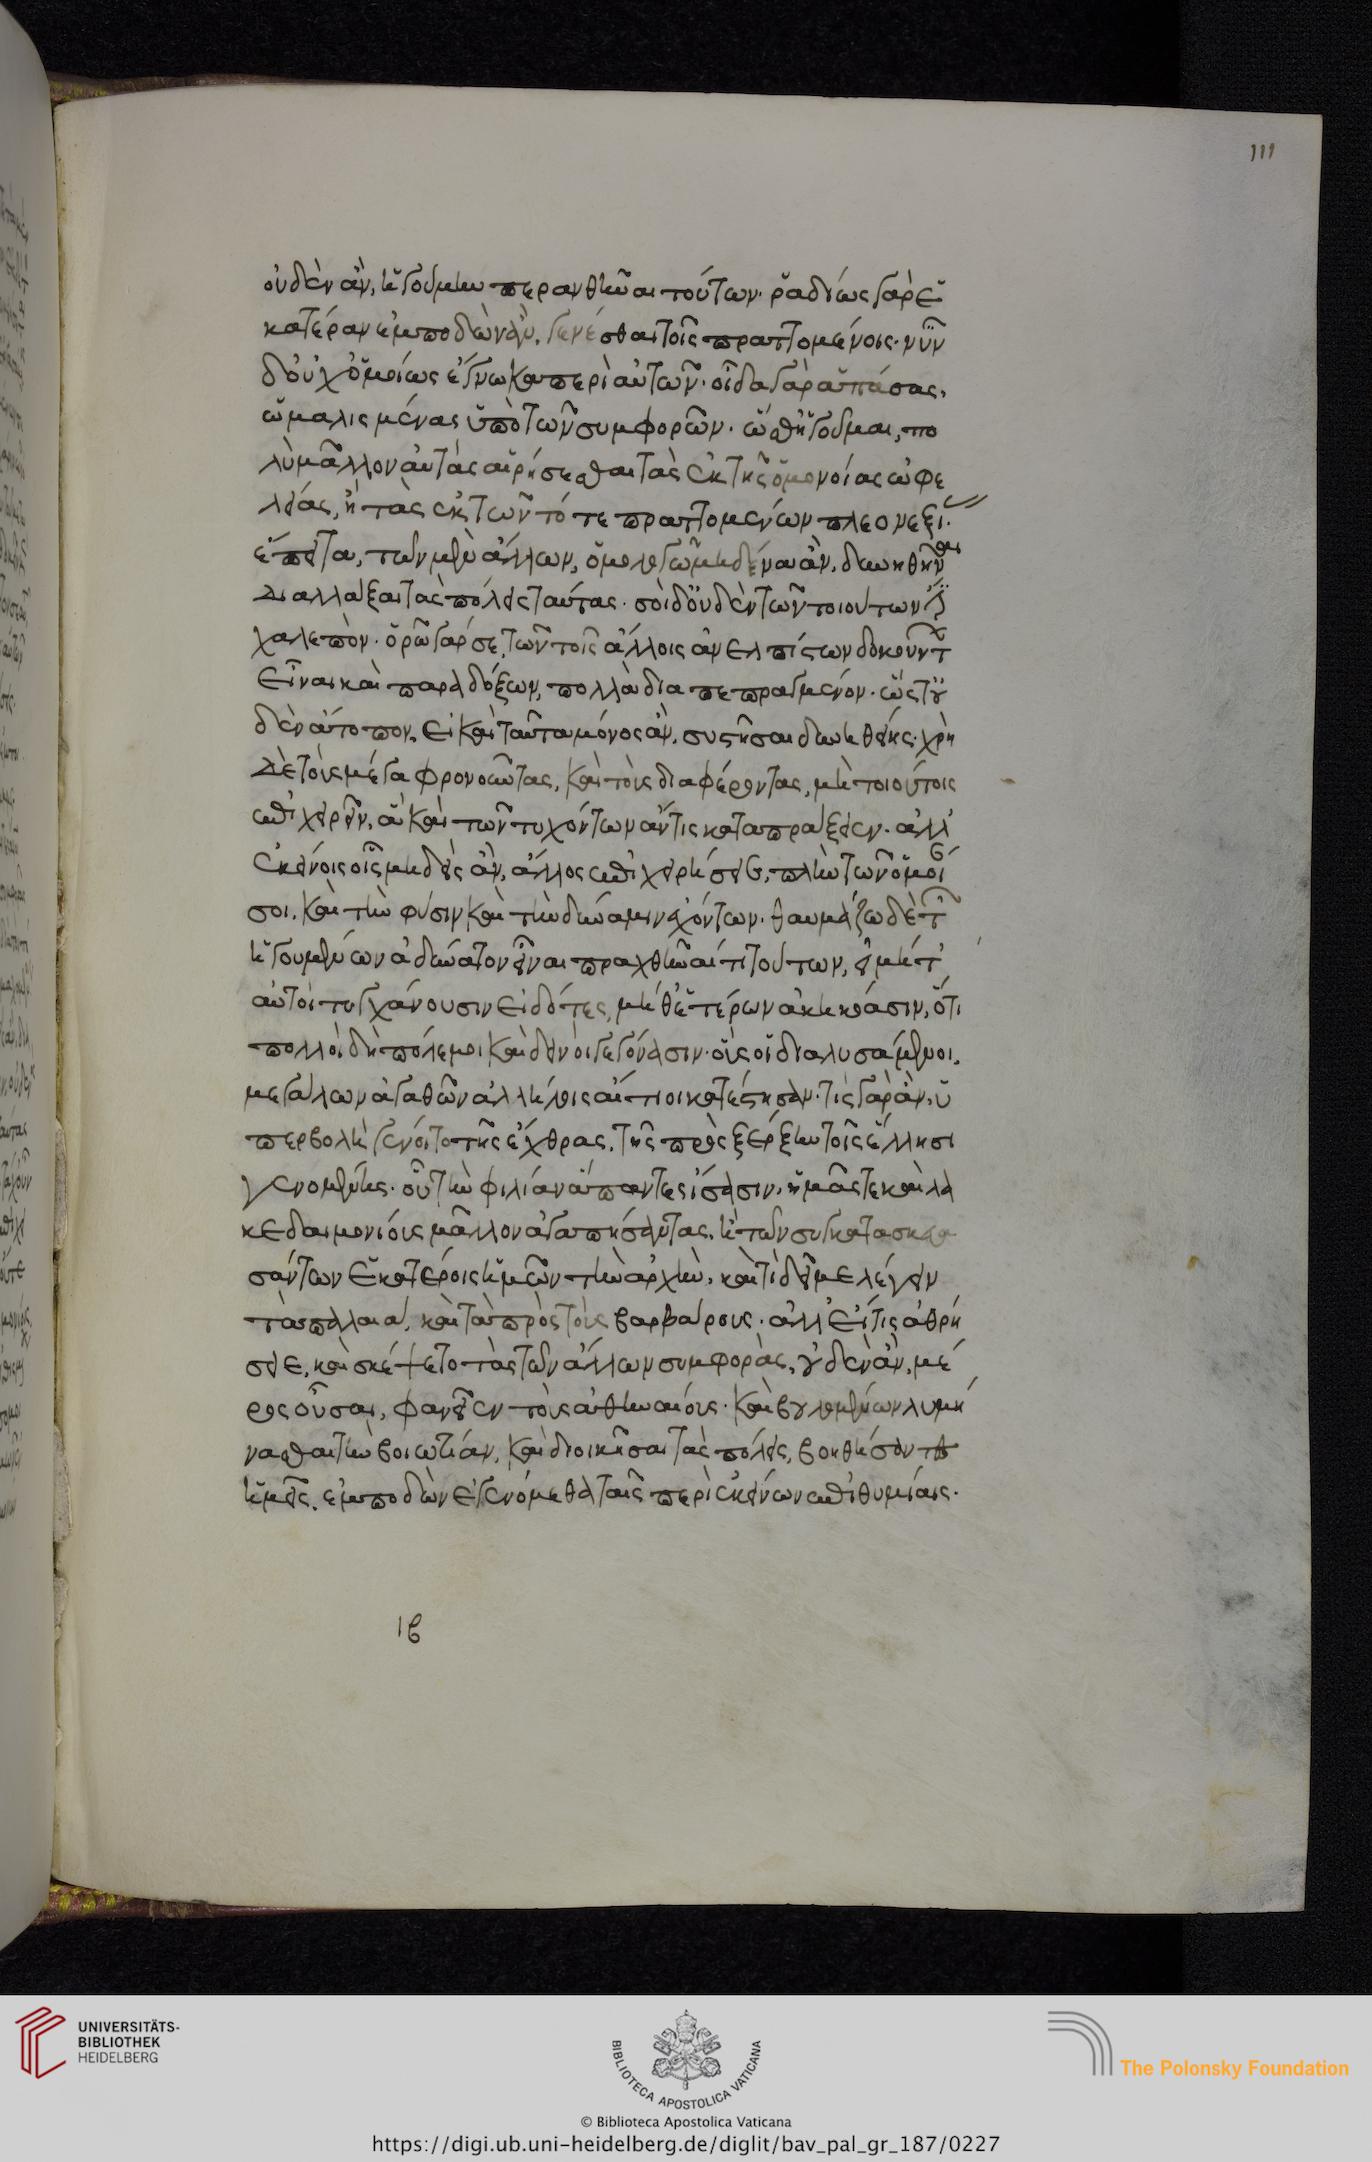 111
οὐδὲν ἂν, ἡγούμην περανθῆναι τούτων· ῥαδίως γὰρ ἑ
κατέραν ἐμποδὼν ἂν, γενέσθαι τοῖς πραττομένοις· νῦν
δ' οὐχ ὁμοίως ἔγνωκα περὶ αὐτῶν· οἶδα γὰρ ἁπάσας,
ὡμαλισμένας ὑπὸ τῶν συμφορῶν· ὥσθ' ἡγοῦμαι, πο
λὺ μᾶλλον αὐτὰς αἱρήσεσθαι τὰς ἐκ τῆς ὁμονοίας ὠφε
λείας, ἢ τὰς ἐκ τῶν τότε πραττομένων πλεονεξί·
ἔπειτα, τῶν μὲν ἄλλων, ὁμολογῶ μηδένα ἂν, δυνηθῆναι
διαλλάξαι τὰς πόλεις ταύτας· σοὶ δ' οὐδὲν τῶν τοιούτων ἐστὶ
χαλεπὸν· ὁρῶ γάρ σε, τῶν τοῖς ἄλλοις ἀνελπίστων δοκούντων
εἶναι καὶ παραδόξων, πολλὰ διαπεπραγμένον· ὥστ' οὐ
δὲν ἄτοπον, εἰ καὶ ταῦτα μόνος ἂν, συστῆσαι δυνηθείης· χρὴ
δὲ τοὺς μέγα φρονοῦντας, καὶ τοὺς διαφέροντας, μὴ τοιούτοις
ἐπιχειρεῖν, ἃ καὶ τῶν τυχόντων ἄν τις καταπράξειεν· ἀλλ'
ἐκείνοις οἷς μηδεὶς ἂν, ἄλλος ἐπιχειρήσειε, πλὴν τῶν ὁμοί
σοι, καὶ τὴν φύσιν καὶ τὴν δύναμιν ἐχόντων· θαυμάζω δὲ τῶν
ἡγουμένων ἀδύνατον εἶναι πραχθῆναί τι τούτων, εἰ μήτ'
αὐτοὶ τυγχάνουσιν εἰδότες, μήθ' ἑτέρων ἀκηκόασιν, ὅτι
πολλοὶ δὴ πόλεμοι καὶ δεινοὶ γεγόνασιν· οὓς οἱ διαλυσάμενοι,
μεγάλων ἀγαθῶν ἀλλήλοις αἴτιοι κατέστησαν· τίς γὰρ ἂν, ὑ
περβολὴ γένοιτο τῆς ἔχθρας, τῆς πρὸς ξέρξην τοῖς ἕλλησι
γενομένης· οὗ τὴν φιλίαν ἅπαντες ἴσασιν, ἡμᾶς τε καὶ λα
κεδαιμονίους μᾶλλον ἀγαπήσαντας, ἢ τῶν συγκατασκευα
σάντων ἑκατέροις ἡμῶν τὴν ἀρχὴν, καὶ τί δεῖ με λέγειν
τὰ παλαιὰ, καὶ τὰ πρὸς τοὺς βαρβάρους· ἀλλ' εἴ τις ἀθρή
σειε, καὶ σκέψετο τὰς τῶν ἄλλων συμφορὰς, οὐδὲν ἂν, μέ
ρος οὖσαι, φανεῖεν τοὺς ἀθηναίους· καὶ βουλομένων λυμή
νασθαι τὴν βοιωτίαν, καὶ διοικῆσαι τὰς πόλεις, βοηθήσαντες
ἡμεῖς, ἐμποδὼν ἐγενόμεθα ταῖς περὶ ἐκείνων ἐπιθυμίαις·
ιβ
UNIVERSITÄTS-
BIBLIOTHEK
HEIDELBERG
BIBLIOTECA APOSTOLICA VATICANA
The Polonsky Foundation
© Biblioteca Apostolica Vaticana
https://digi.ub.uni-heidelberg.de/diglit/bav_pal_gr_187/0227